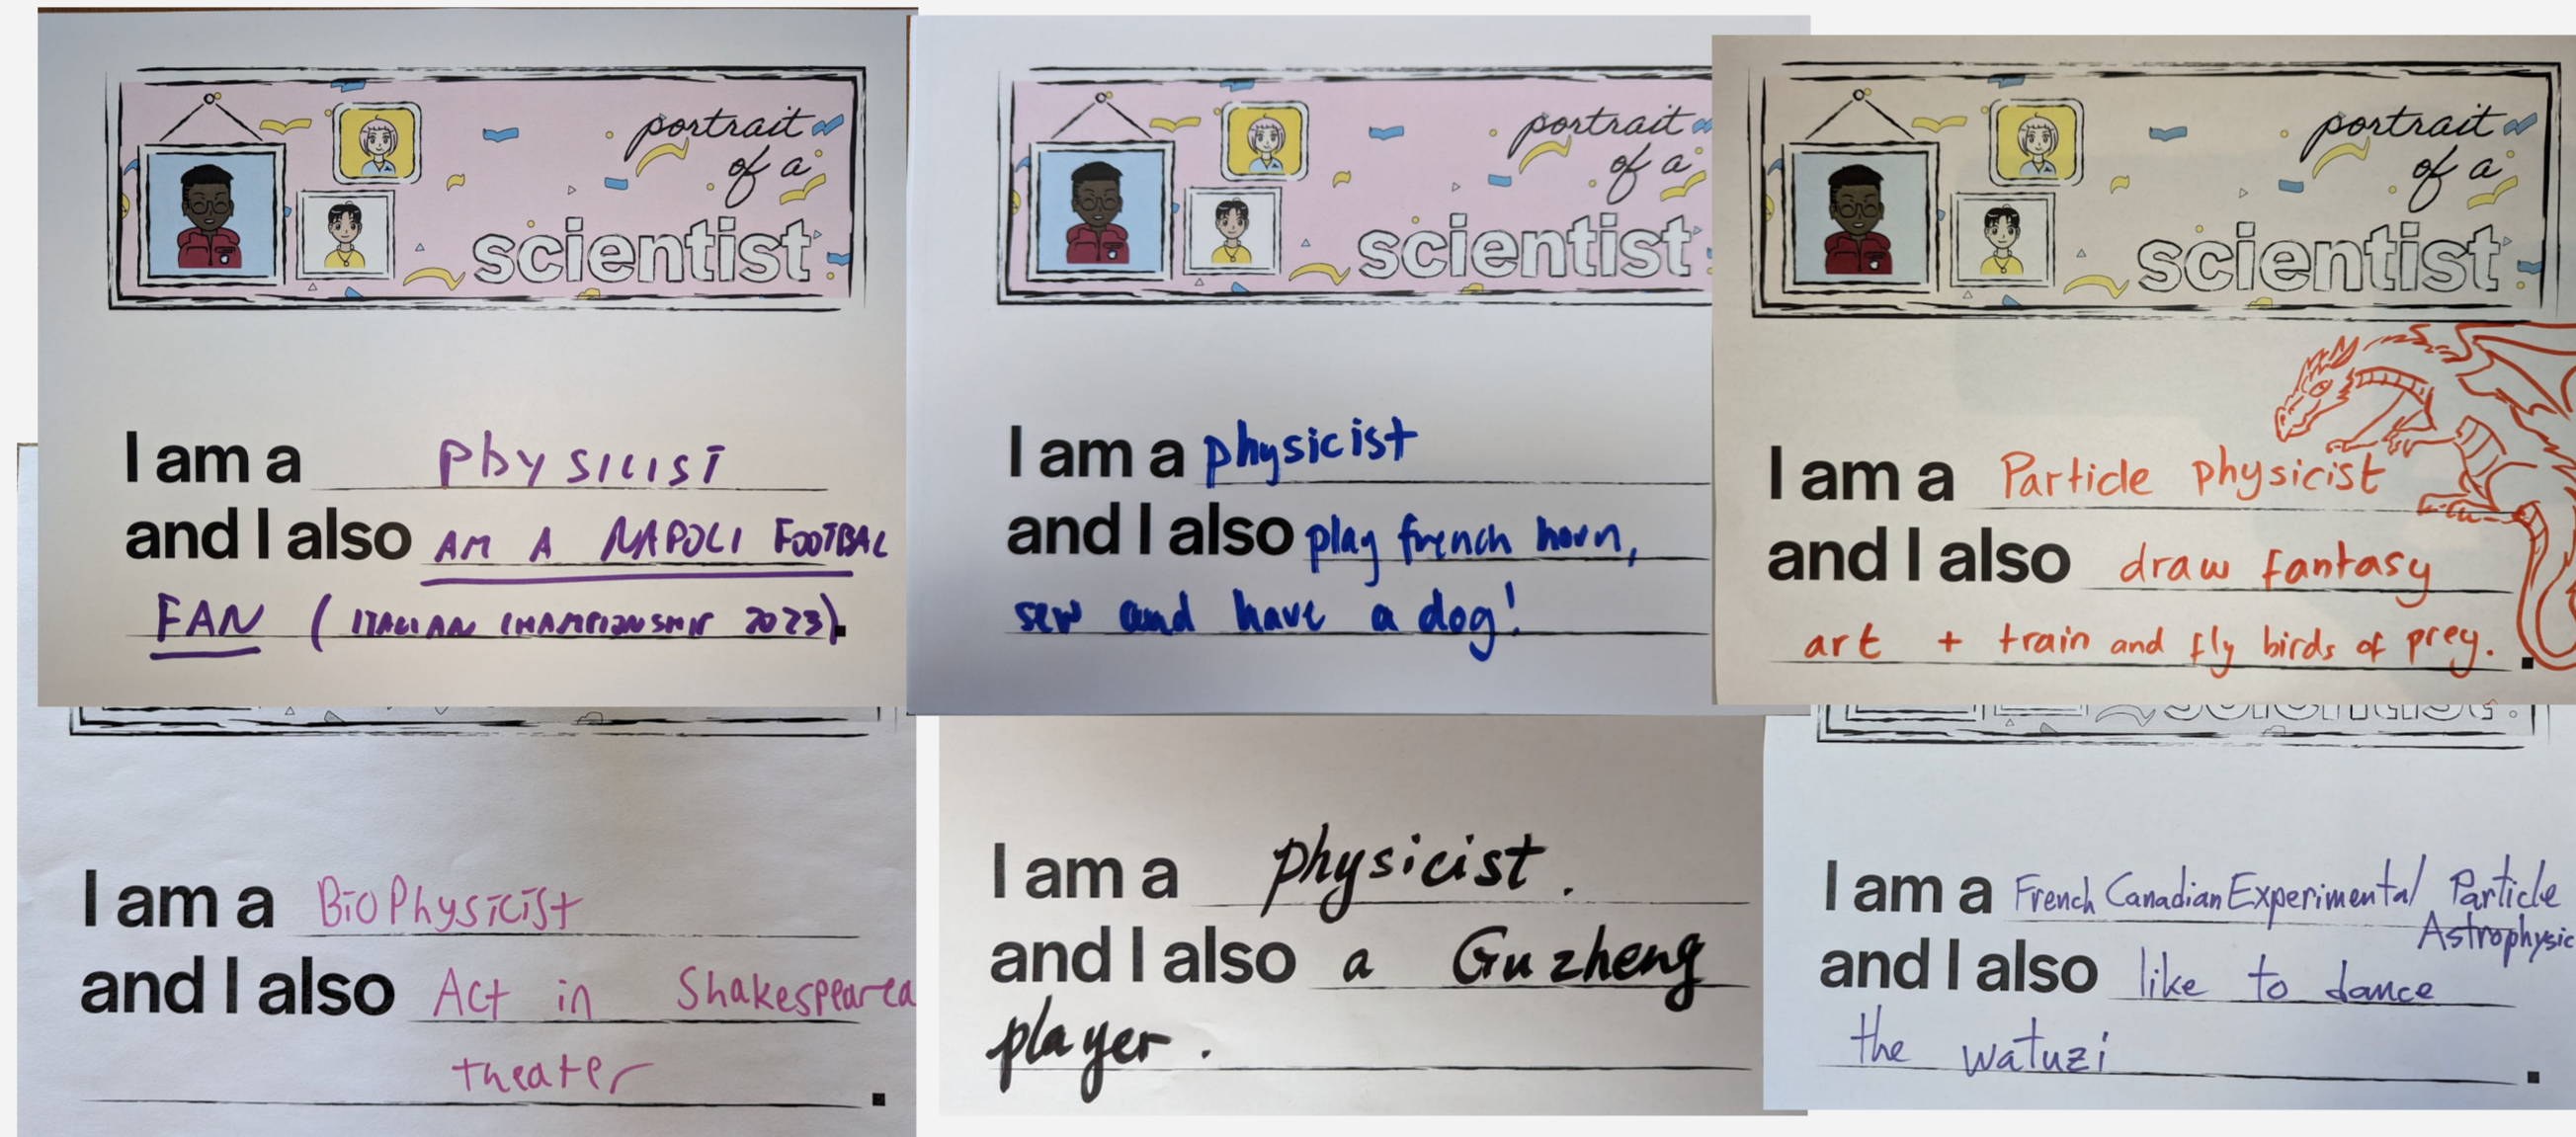 portrait
of a
scientist
I am a physicist
and I also AM A NAPOLI FOOTBAL
FAN (ITALIAN CHAMPIONSHIP 2023).
portrait
of a
scientist
I am a physicist
and I also play french horn,
sew and have a dog!
portrait
of a
scientist
I am a Particle physicist
and I also draw fantasy
art + train and fly birds of prey.
I am a BioPhysicist
and I also Act in Shakespearea
theater.
I am a physicist.
and I also a Guzheng
player.
scientist
I am a French Canadian Experimental Particle
Astrophysic
and I also like to dance
the watuzi.